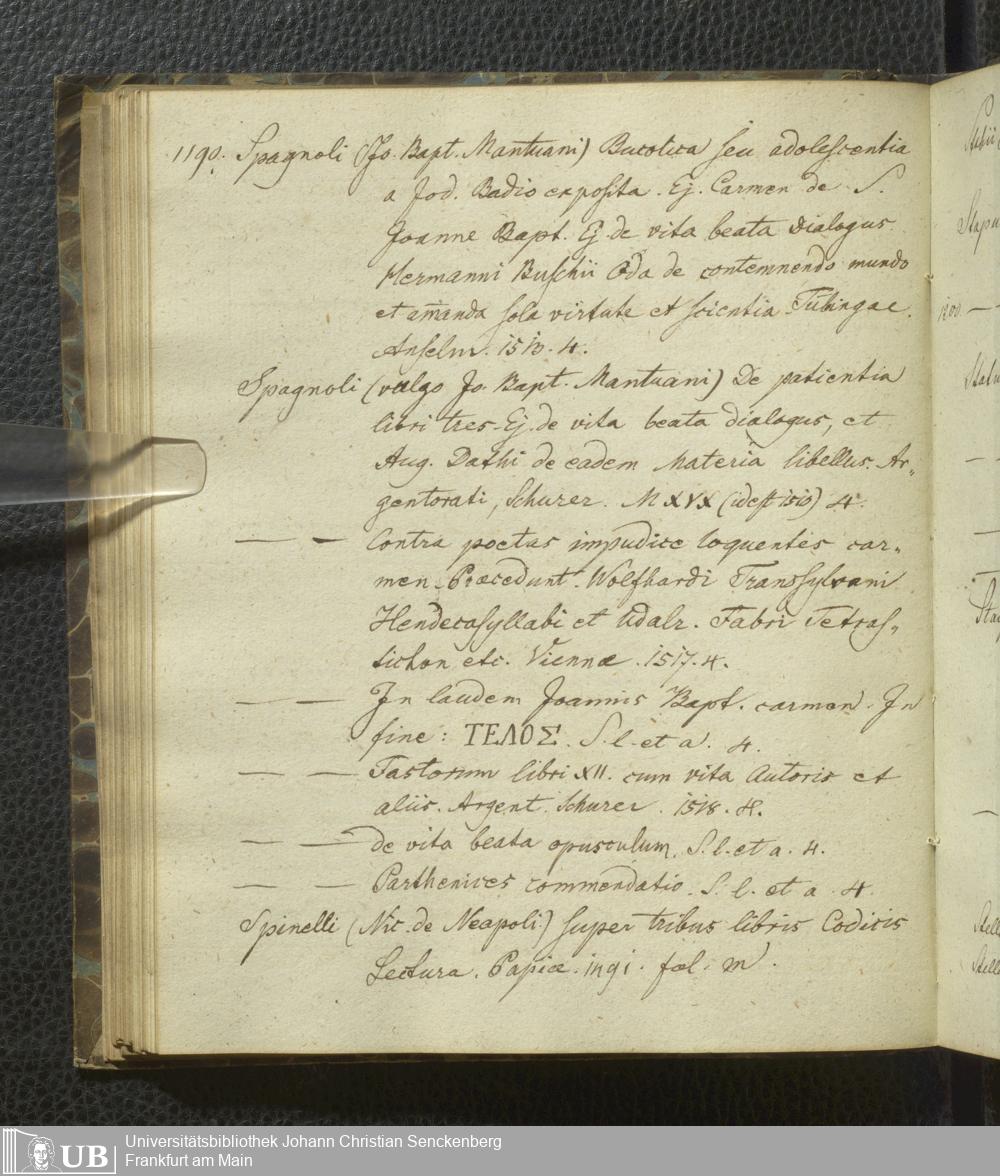 1190. Spagnoli (Jo. Bapt. Mantuani) Bucolica seu adolescentia
a Jod. Badio exposita. Ej. Carmen de S.
Joanne Bapt. Ej. de vita beata Dialogus
Hermanni Buschii Oda de contemnendo mundo
et amanda sola virtute et scientia Tubingae.
Anselm. 1513. 4.
Spagnoli (vulgo Jo. Bapt. Mantuani) De patientia
libri tres. Ej. de vita beata dialogus, et
Aug. Dathi de eadem Materia libellus. Ar-
gentorati, Schurer. MXVX (idest 1510) 4.
— — Contra poetas impudice loquentes car-
men. Præcedunt. Wolfhardi Transsylvani
Hendecasyllabi et Udalr. Fabri Tetras-
tichon etc. Viennæ. 1517. 4.
— — In laudem Joannis Bapt. carmen. In
fine: ΤΕΛΟΣ. S. l. et a. 4.
— — Fastorum libri XII. cum vita Autoris et
aliis. Argent. Schurer. 1518. 4.
— — de vita beata opusculum. S. l. et a. 4.
— — Parthenices commendatio. S. l. et a. 4.
Spinelli (Nic. de Neapoli) super tribus libris Codicis
Lectura. Papiæ. 1491. fol. m.
1200. —
UB Universitätsbibliothek Johann Christian Senckenberg
Frankfurt am Main